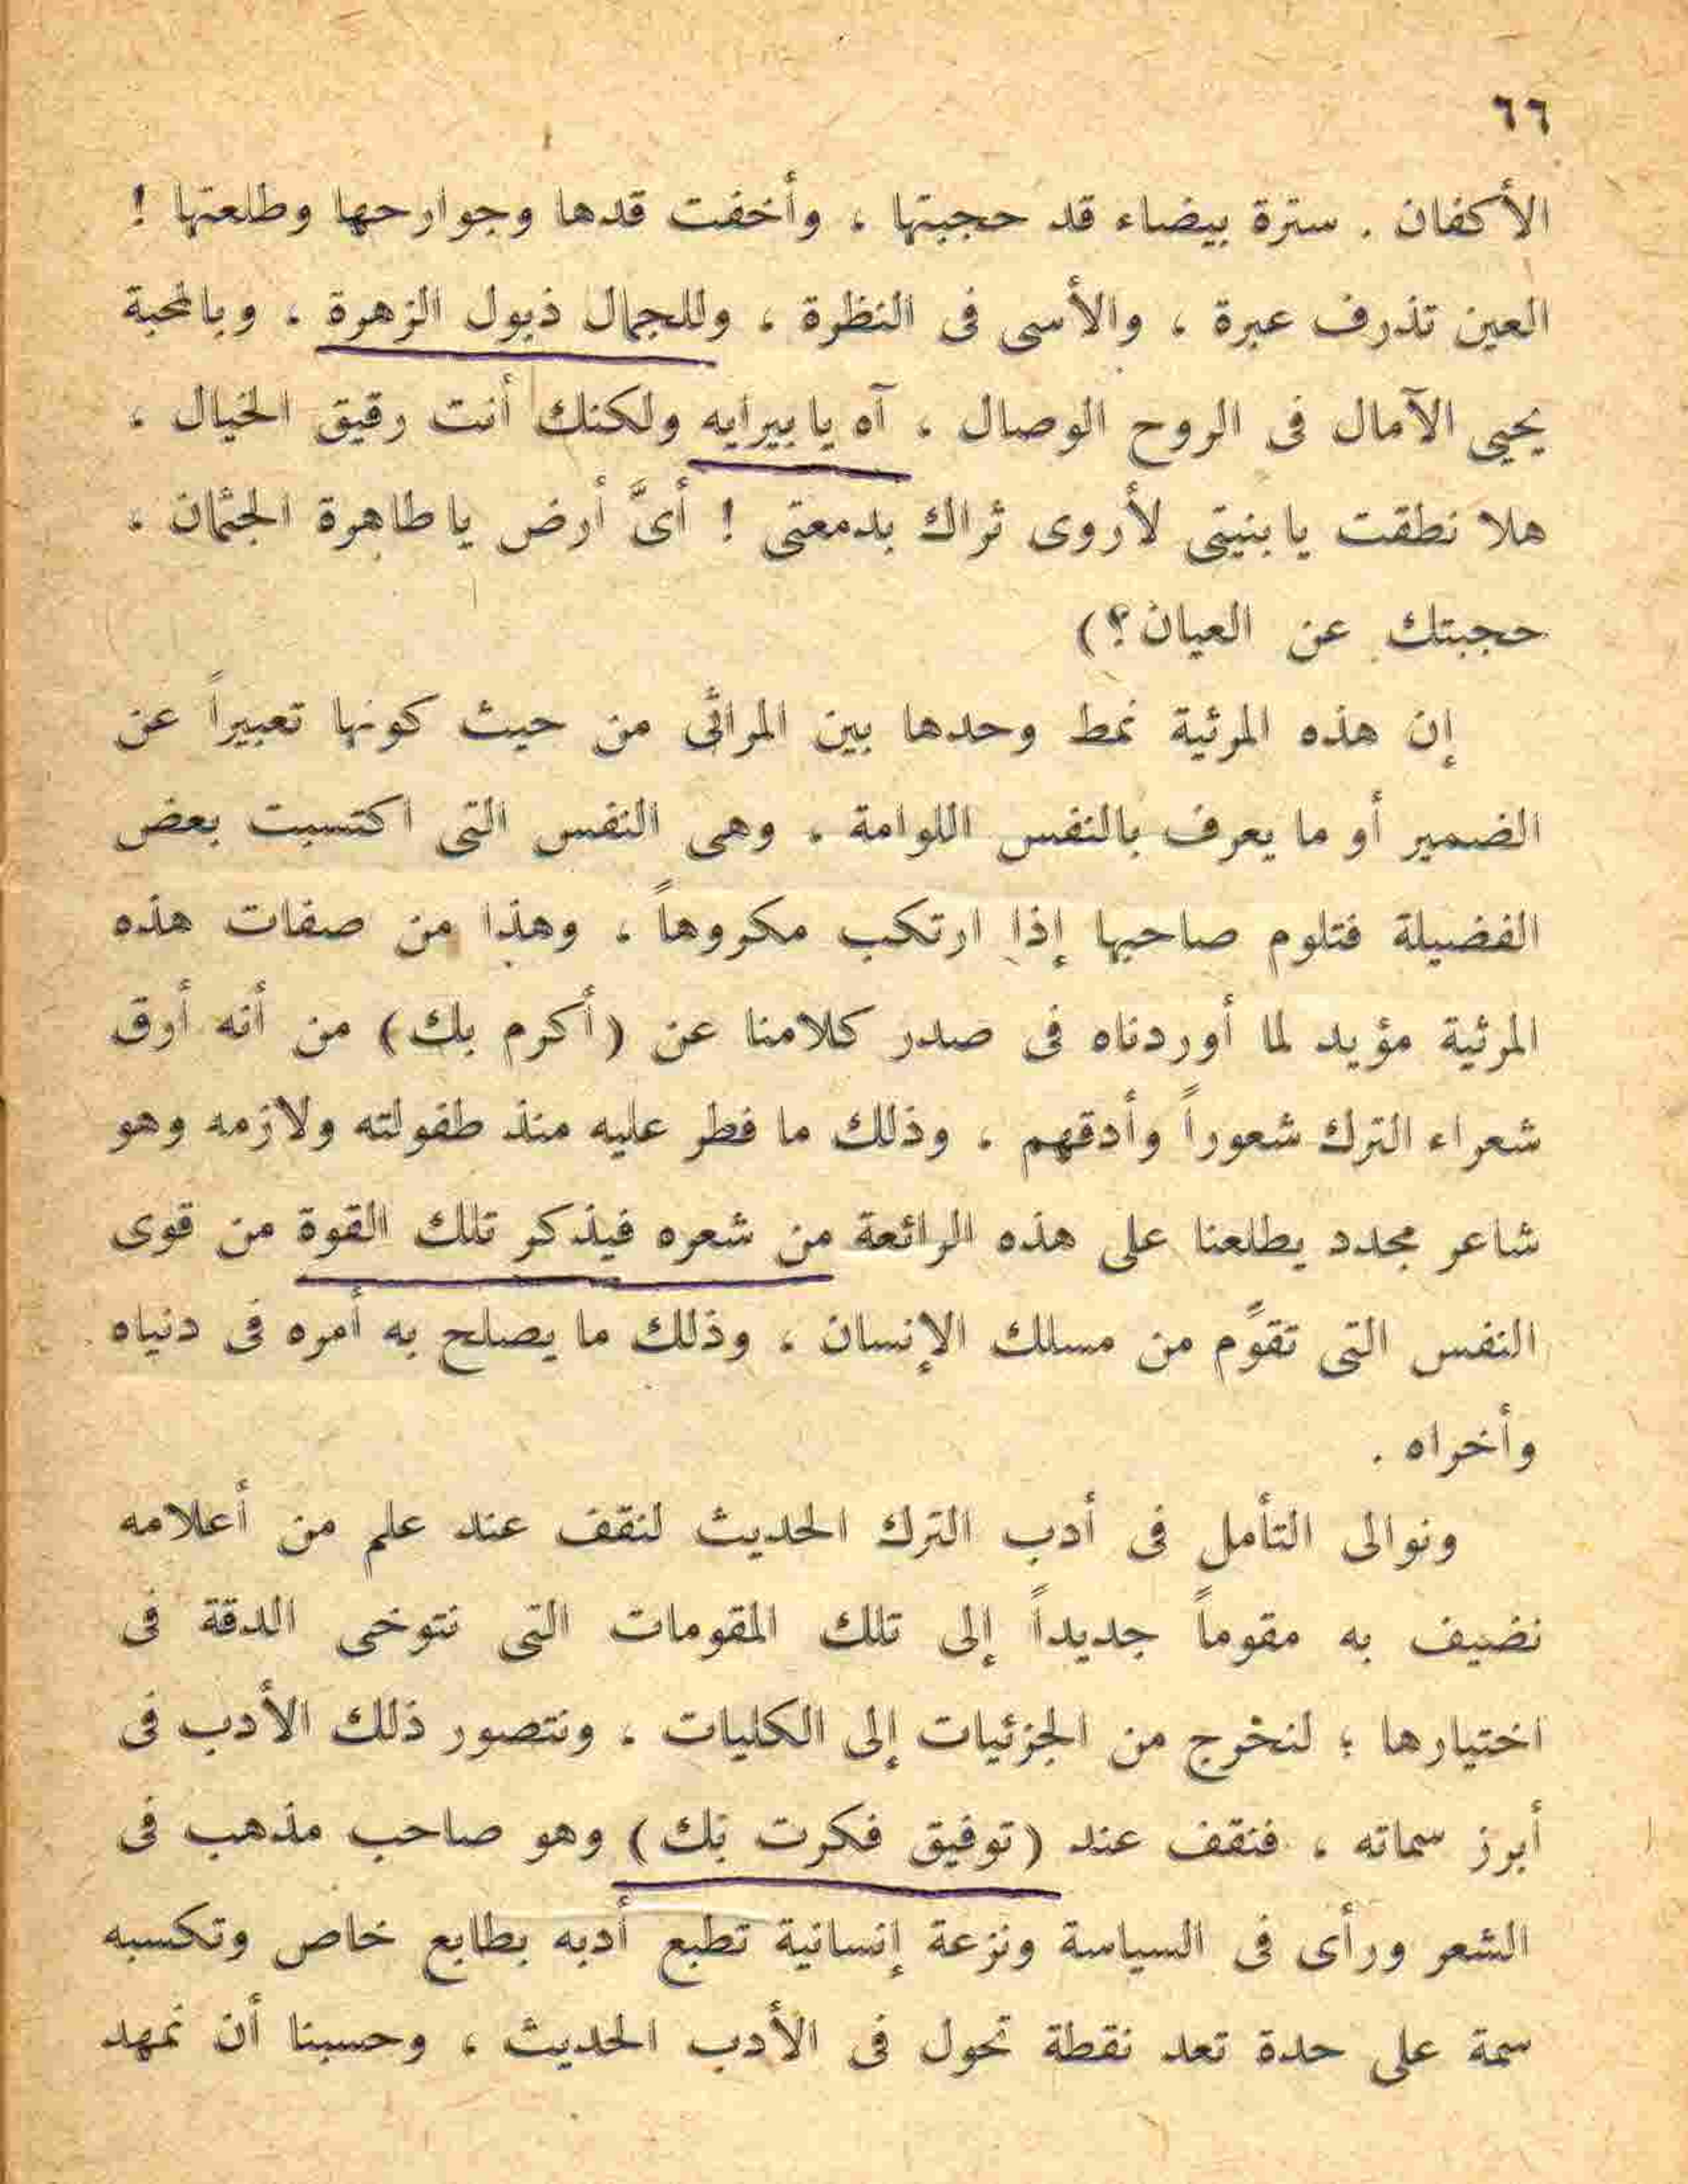 ٦٦
الأكفان . سترة بيضاء قد حجبتها ، وأخفت قدها وجوارحها وطلعتها !
العين تذرف عبرة ، والأسى فى النظرة ، وللجمال ذبول الزهرة ، وبالمحبة
يحيى الآمال فى الروح الوصال ، آه يا بيرايه ولكنك أنت رقيق الخيال ،
هلا نطقت يا بنيتى لأروى ثراك بدمعتى ! أىَّ أرض يا طاهرة الجثمان ،
حجبتك عن العيان ؟)
إن هذه المرثية نمط وحدها بين المراثى من حيث كونها تعبيراً عن
الضمير أو ما يعرف بالنفس اللوامة ، وهى النفس التى اكتسبت بعض
الفضيلة فتلوم صاحبها إذا ارتكب مكروهاً ، وهذا من صفات هذه
المرثية مؤيد لما أوردناه فى صدر كلامنا عن (أكرم بك) من أنه أرق
شعراء الترك شعوراً وأدقهم ، وذلك ما فطر عليه منذ طفولته ولازمه وهو
شاعر مجدد يطلعنا على هذه الرائعة من شعره فيذكر تلك القوة من قوى
النفس التى تقوِّم من مسلك الإنسان ، وذلك ما يصلح به أمره فى دنياه
وأخراه .
ونوالى التأمل فى أدب الترك الحديث لنقف عند علم من أعلامه
نضيف به مقوماً جديداً إلى تلك المقومات التى نتوخى الدقة فى
اختيارها ؛ لنخرج من الجزئيات إلى الكليات ، ونتصور ذلك الأدب فى
أبرز سماته ، فنقف عند (توفيق فكرت بك) وهو صاحب مذهب فى
الشعر ورأى فى السياسة ونزعة إنسانية تطبع أدبه بطابع خاص وتكسبه
سمة على حدة تعد نقطة تحول فى الأدب الحديث ، وحسبنا أن نمهد